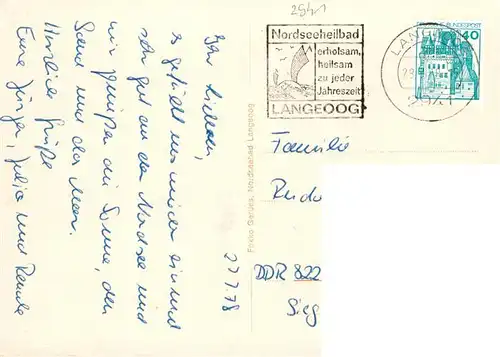 2941
Nordseeheilbad
erholsam,
heilsam
zu jeder
Jahreszeit
LANGEOOG
LANGEOOG
2941
DEUTSCHE BUNDESPOST
40
27.7.78
Ihr Lieben,
es gefällt uns wieder einmal
sehr gut an der Nordsee und
wir genießen die Sonne, den
Sand und das Meer.
Herzliche Grüße
Eure Jürgen, Julia und Renate
Familie
Rudo
DDR 822
Sieg
Nordseebad Langeoog